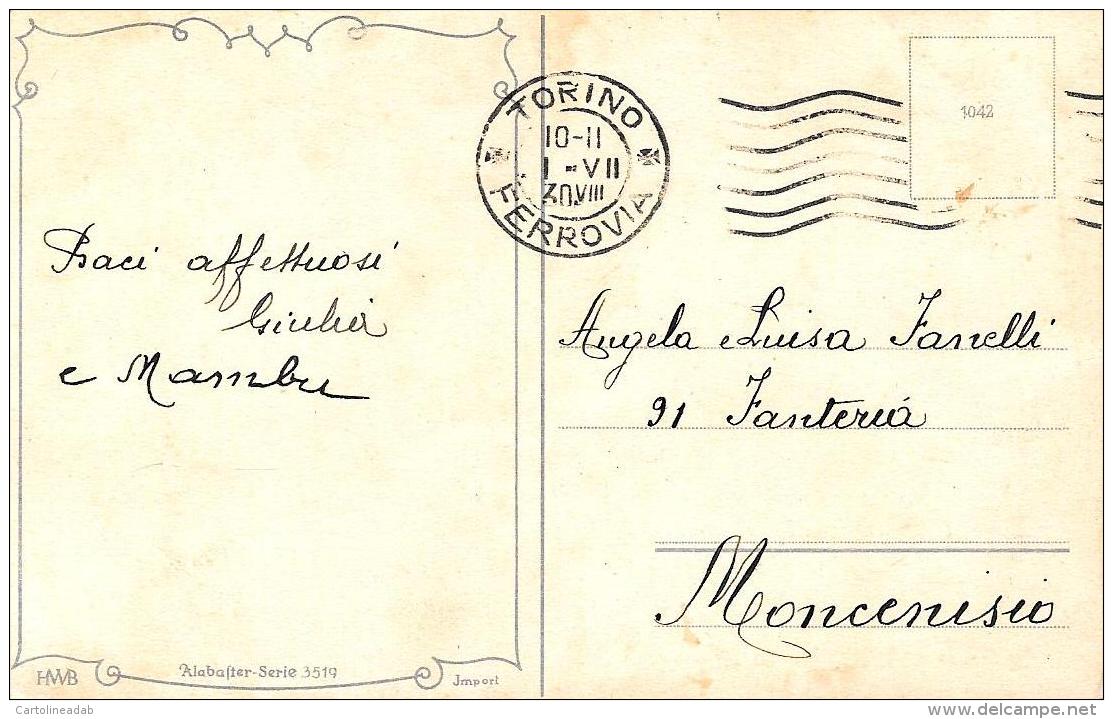 TORINO
10-11
1-VII
30.VIII
FERROVIA
1042
Baci affettuosi
Giulia
e Mambu
Angela e Luisa Fanelli
91 Fanteria
Moncenisio
HWB
Alabaſter-Serie 3519
Jmport
© Cartolineadab
delcampe.net